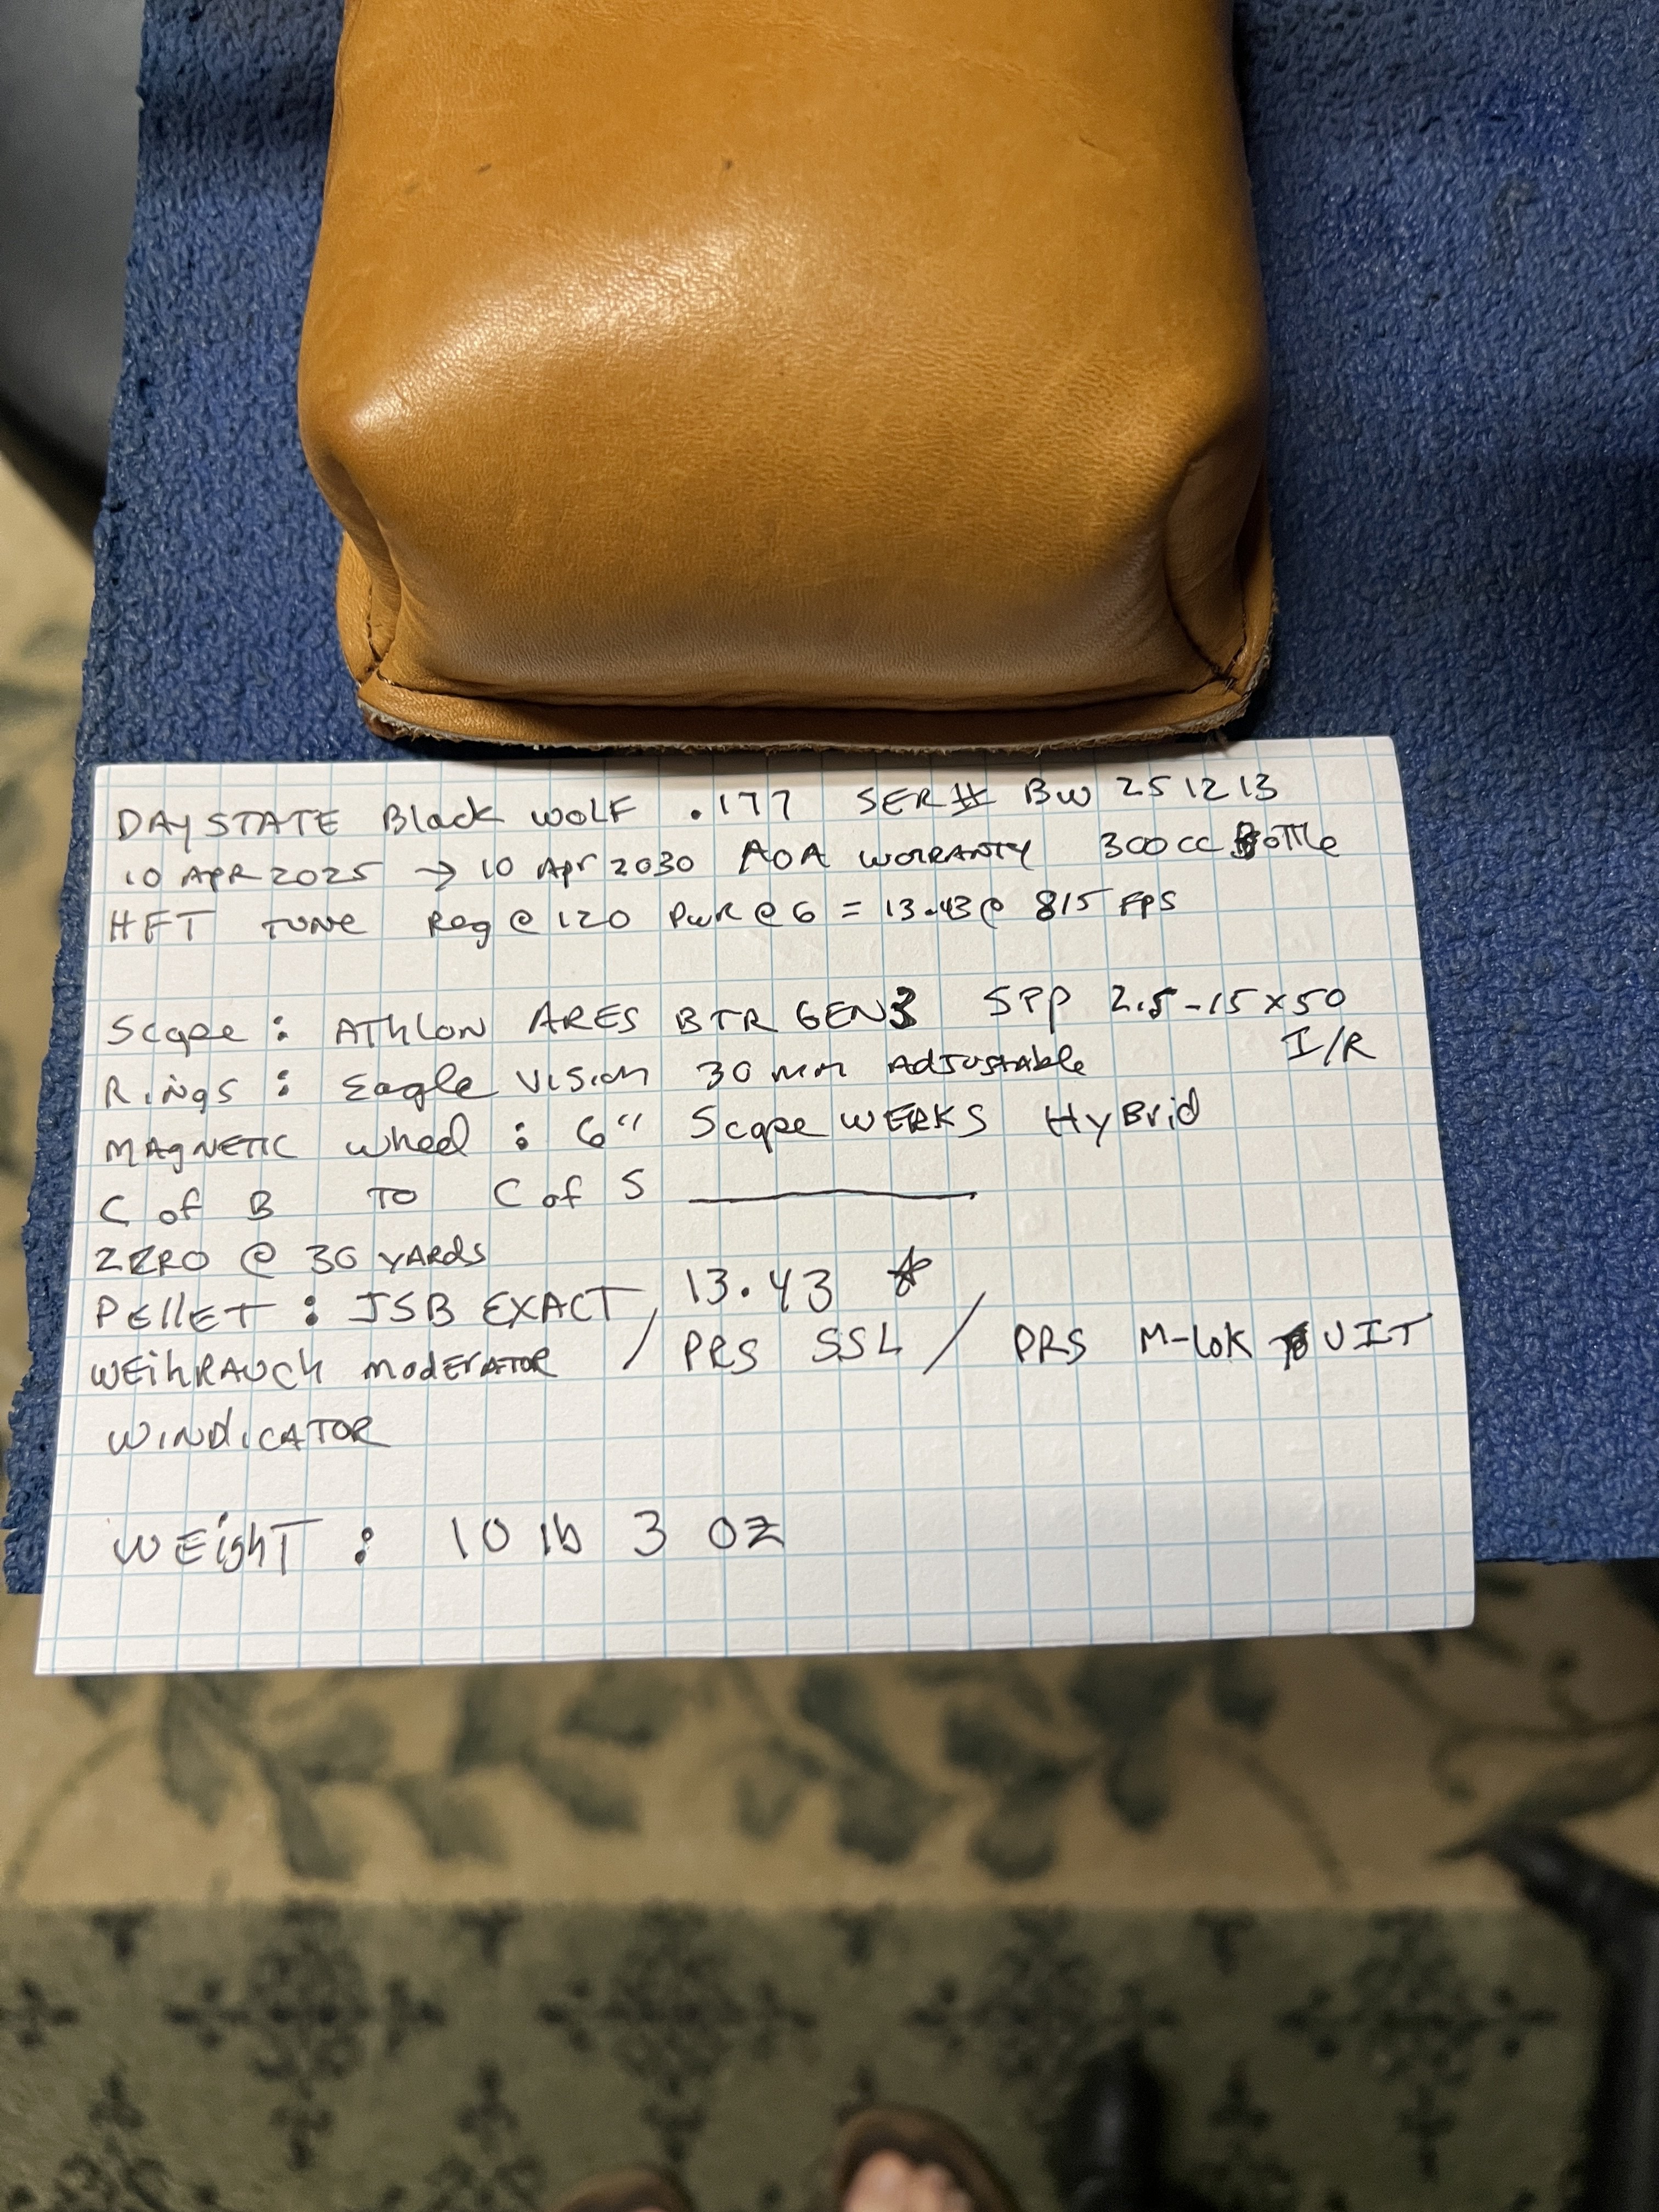 DAYSTATE Black WOLF .177 SER# BW 251213
10 APR 2025 → 10 Apr 2030 AOA WORRANTY 300cc Bottle
HFT TUNE Reg @ 120 PWR @ 6 = 13.43 @ 815 FPS
Scope : AThlON ARES BTR GEN3 SFP 2.5-15x50
I/R
Rings : Eagle Vision 30mm AdJustable
MAgNETIC wheel : 6" Scope WERKS HyBrid
C of B TO C of S
ZERO @ 30 YARdS
PEllET : JSB EXACT 13.43 *
WEihRAUCh modERATOR / PRS SSL / PRS M-LoK UIT
WINdiCATOR
WEighT : 10 lb 3 oz